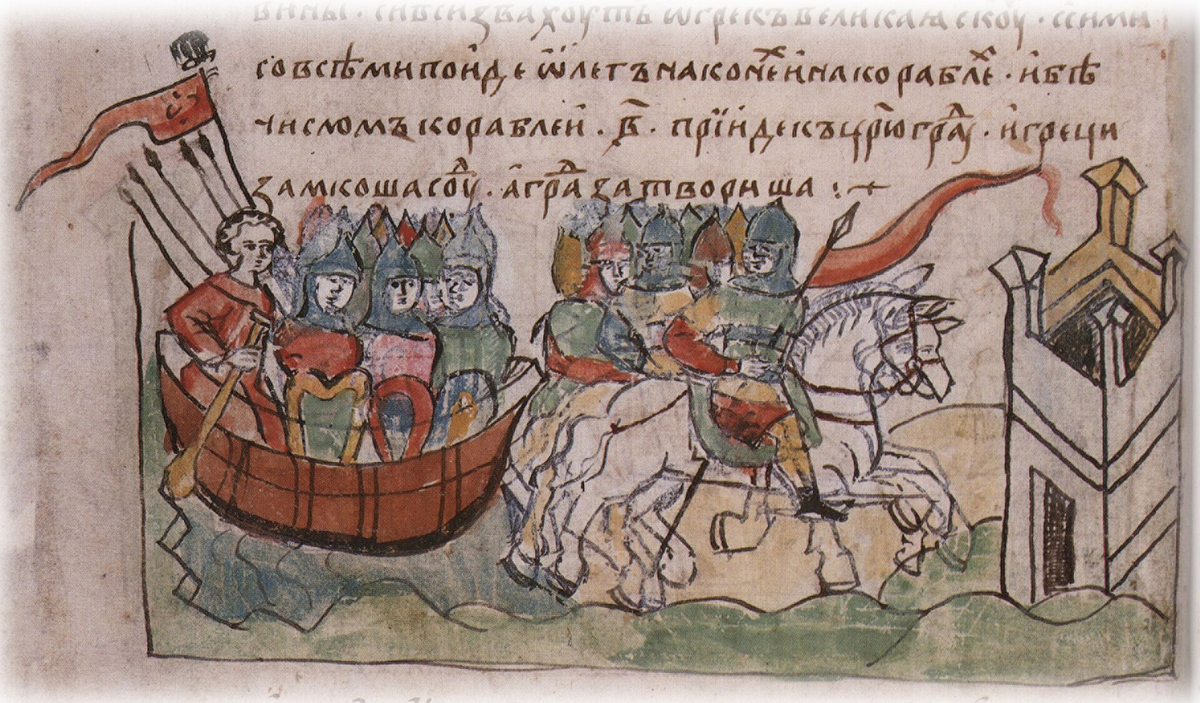 вины · си вси звахоуть ѿ грекъ великаꙗ скоу · с сими
со всѣми поиде ѡлегъ на конеⷯ и на кораблеⷯ · и бѣ
числомъ кораблеи · в҃ · прїиде къ цр҃юграⷣ · и греци
замкоша соуⷣ · а граⷣ затвориша :~